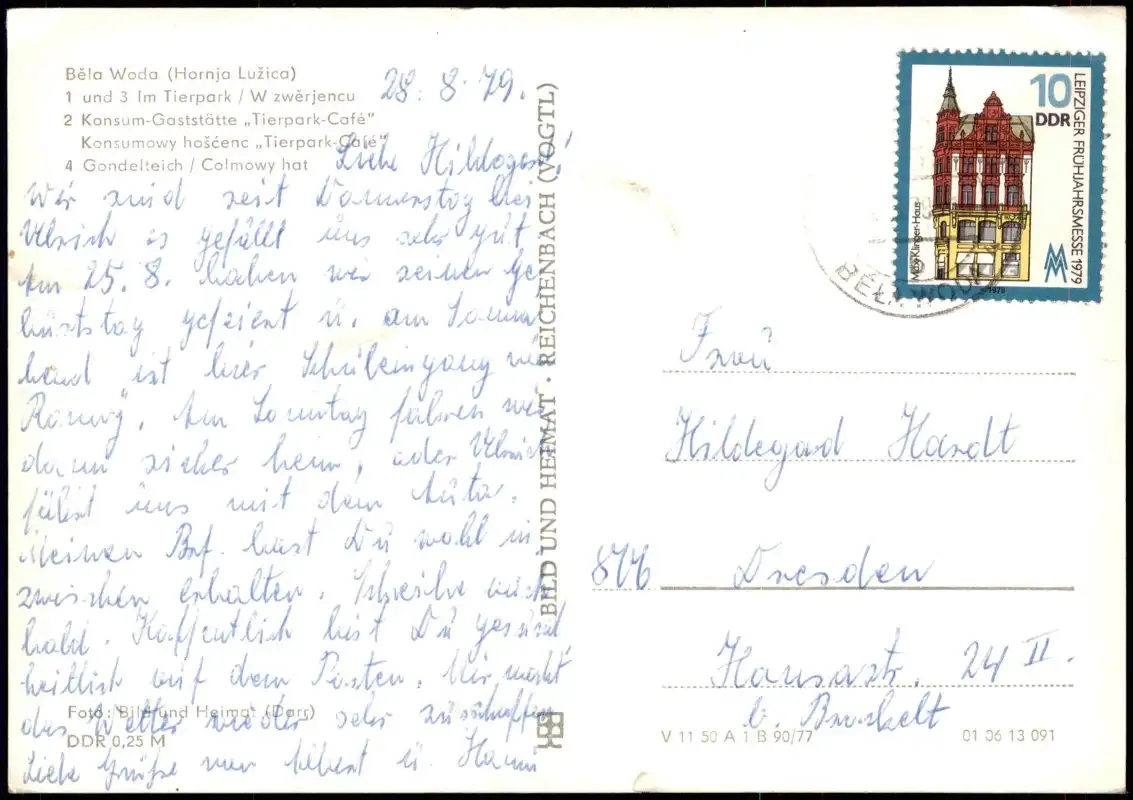 Běla Woda (Hornja Lužica)
1 und 3 Im Tierpark / W zwěrjencu
2 Konsum-Gaststätte „Tierpark-Café“
Konsumowy hosćenc „Tierpark-Café“
4 Gondelteich / Colmowy hat
28. 8. 79.
Liebe Hildegard!
Wir sind seit Donnerstag bei
Ulrich es gefällt uns sehr gut
Am 25. 8. haben wir seinen Ge
burtstag gefeiert u. am Sonna
bend ist hier Schuleingang
Am Sonntag fahren wir
dann sicher heim, oder Ulrich
fährt uns mit dem Auto.
Meinen Brf. hast Du wohl in
zwischen erhalten. Schreibe auch
bald. Hoffentlich bist Du gesund
heitlich auf dem Posten. Mir macht
das Wetter wieder sehr zu schaffen
Liebe Grüße von u. Hanni
Foto: Bild und Heimat (Darr)
DDR 0,25 M
BILD UND HEIMAT · REICHENBACH (VOGTL)
10
DDR
LEIPZIGER FRÜHJAHRSMESSE 1979
Max-Klinger-Haus
1979
BĚŁA WODA
Frau
Hildegard Hardt
Dresden
Hansastr. 24 II.
b.
V 11 50 A 1 B 90/77
01 06 13 091